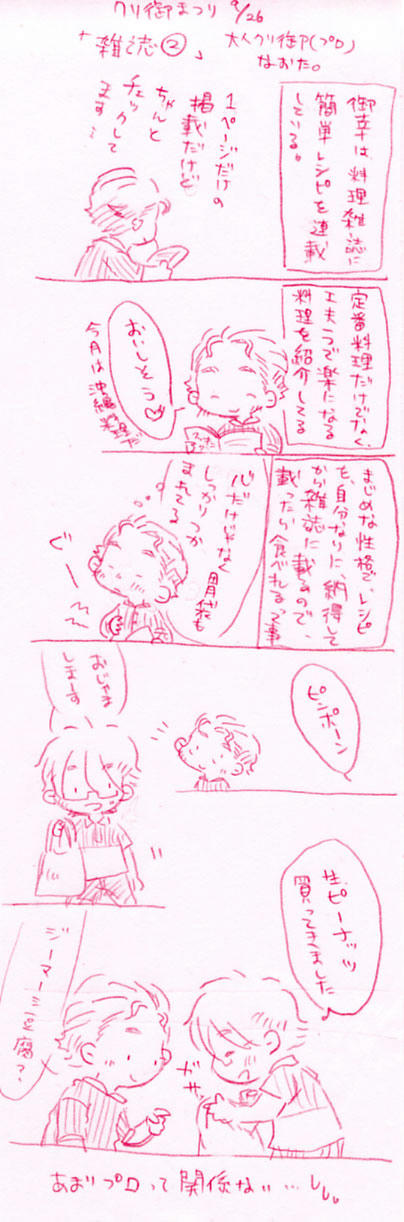 クリ御まつり 9/26
「雑誌②」
大人クリ御(プロ)
なおた。
御幸は、料理雑誌に
簡単レシピを連載
している。
1ページだけの
掲載だけど
ちゃんと
チェックして
ます…
定番料理だけでなく、
工夫1つで楽になる
料理を紹介してる
おいしそう♡
今月は沖縄料理だ
まじめな性格で、レシピ
を、自分なりに、納得して
から雑誌に載るので、
載ったら食べれるって事
心だけじゃなく
胃袋も
しっかりつか
まれてる
ぐー
ピンポーン
おじゃま
しまーす
生ピーナッツ
買ってきました
ジーマーミ豆腐?
ガサ
あまりプロって関係ない…